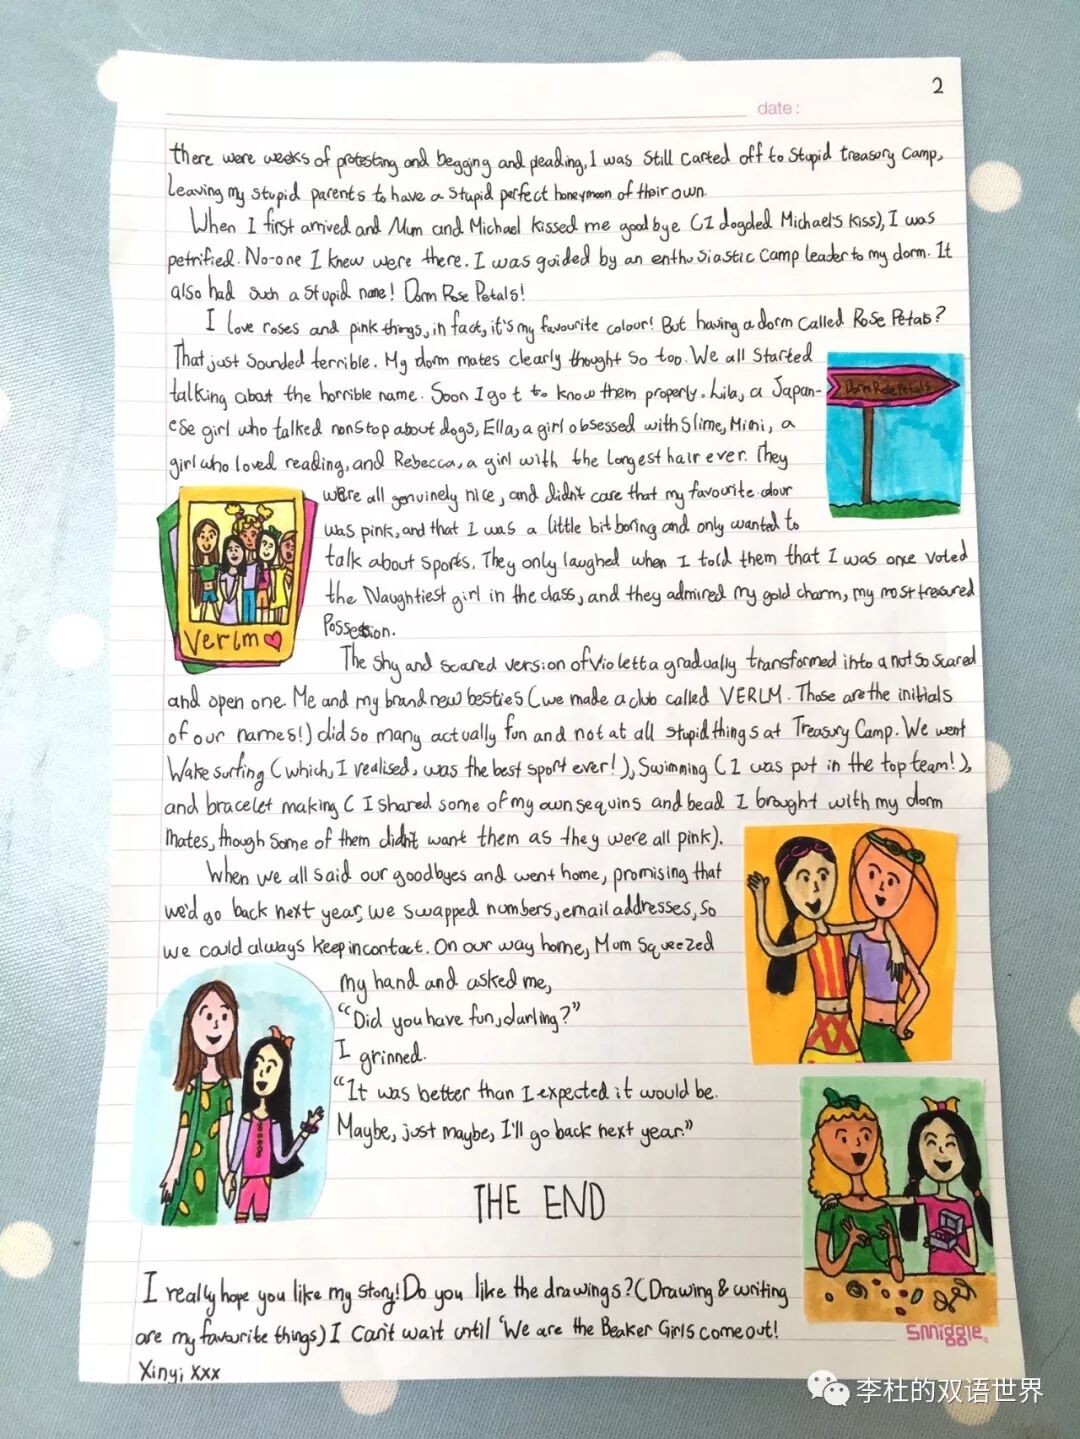 2
date:
there were weeks of protesting and begging and pleading, I was still carted off to stupid treasury camp,
leaving my stupid parents to have a stupid perfect honeymoon of their own.
When I first arrived and Mum and Michael kissed me goodbye (I dogded Michael's kiss), I was
petrified. No-one I knew were there. I was guided by an enthusiastic camp leader to my dorm. It
also had such a stupid name! Dorm Rose Petals!
I love roses and pink things, in fact, it's my favourite colour! But having a dorm called Rose Petals?
That just sounded terrible. My dorm mates clearly thought so too. We all started
talking about the horrible name. Soon I got to know them properly. Lila, a Japan-
ese girl who talked nonstop about dogs, Ella, a girl obsessed with slime, Mimi, a
girl who loved reading, and Rebecca, a girl with the longest hair ever. They
were all genuinely nice, and didn't care that my favourite colour
was pink, and that I was a little bit boring and only wanted to
talk about sports. They only laughed when I told them that I was once voted
the Naughtiest girl in the class, and they admired my gold charm, my most treasured
possession.
Dorm Rose Petals
Verlm
The shy and scared version of Violetta gradually transformed into a not so scared
and open one. Me and my brand new besties (we made a club called VERLM. Those are the initials
of our names!) did so many actually fun and not at all stupid things at Treasury Camp. We went
Wake surfing (which, I realised, was the best sport ever!), Swimming (I was put in the top team!),
and bracelet making (I shared some of my own sequins and bead I brought with my dorm
mates, though some of them didn't want them as they were all pink).
When we all said our goodbyes and went home, promising that
we'd go back next year, we swapped numbers, email addresses, so
we could always keep in contact. On our way home, Mom squeezed
my hand and asked me,
"Did you have fun, darling?"
I grinned.
"It was better than I expected it would be.
Maybe, just maybe, I'll go back next year."
THE END
I really hope you like my story! Do you like the drawings? (Drawing & writing
are my favourite things) I can't wait until 'We are the Beaker Girls come out!
Xinyi xxx
smiggle
李杜的双语世界